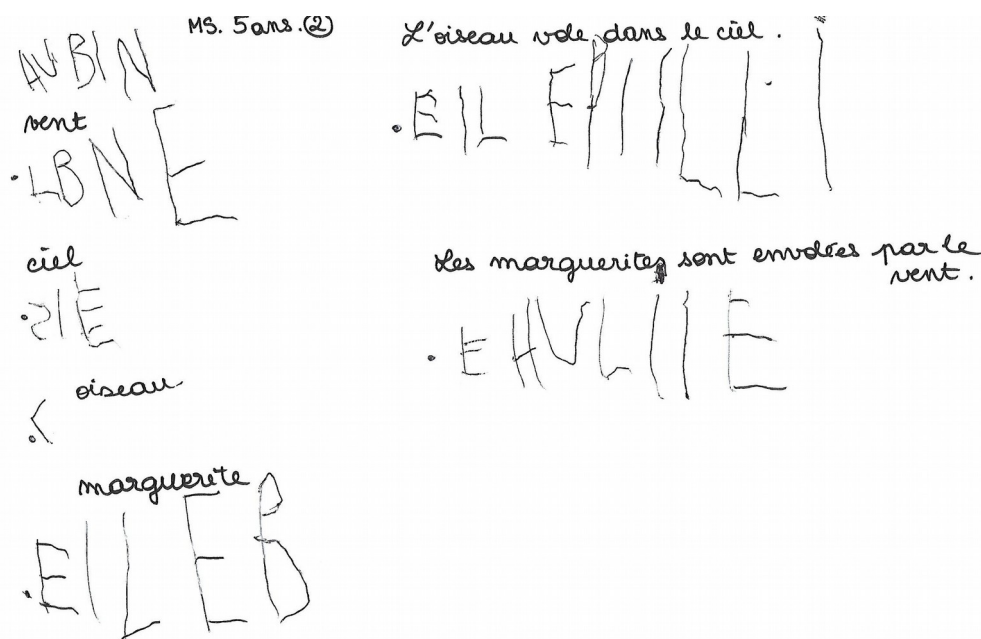 MS. 5ans. (2)
AVBIN
vent
.LBNE
ciel
.SIE
oiseau
.<
marguerite
.EILEB
L'oiseau vole dans le ciel.
.EIL EPIILLI
Les marguerites sont envolées par le
vent.
.EHVLIIE